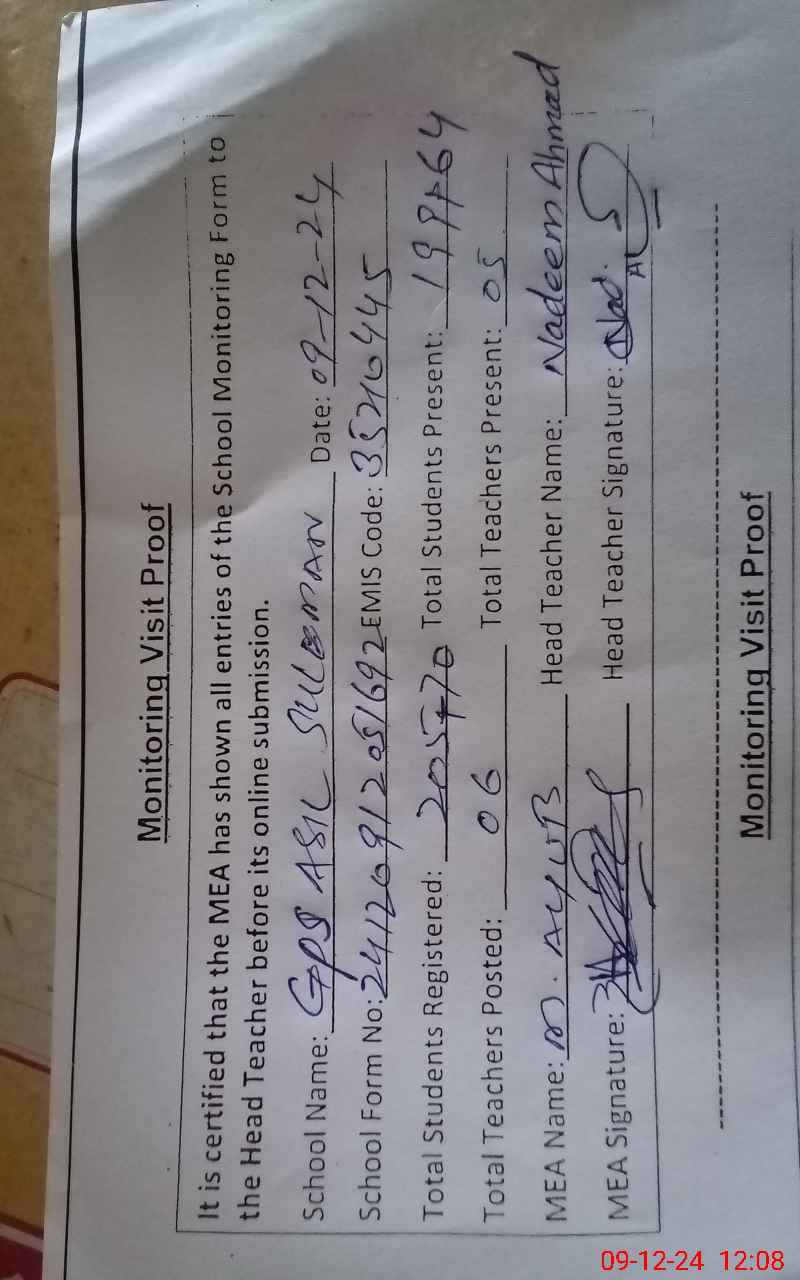 Monitoring Visit Proof
It is certified that the MEA has shown all entries of the School Monitoring Form to
the Head Teacher before its online submission.
School Name: GPS ASIL SULEMAN Date: 09-12-24
School Form No: 24120912051692 EMIS Code: 35210445
Total Students Registered: 205+70 Total Students Present: 198+64
Total Teachers Posted: 06 Total Teachers Present: 05
MEA Name: M. AYUB Head Teacher Name: Nadeem Ahmad
MEA Signature: Head Teacher Signature:
Monitoring Visit Proof
09-12-24 12:08